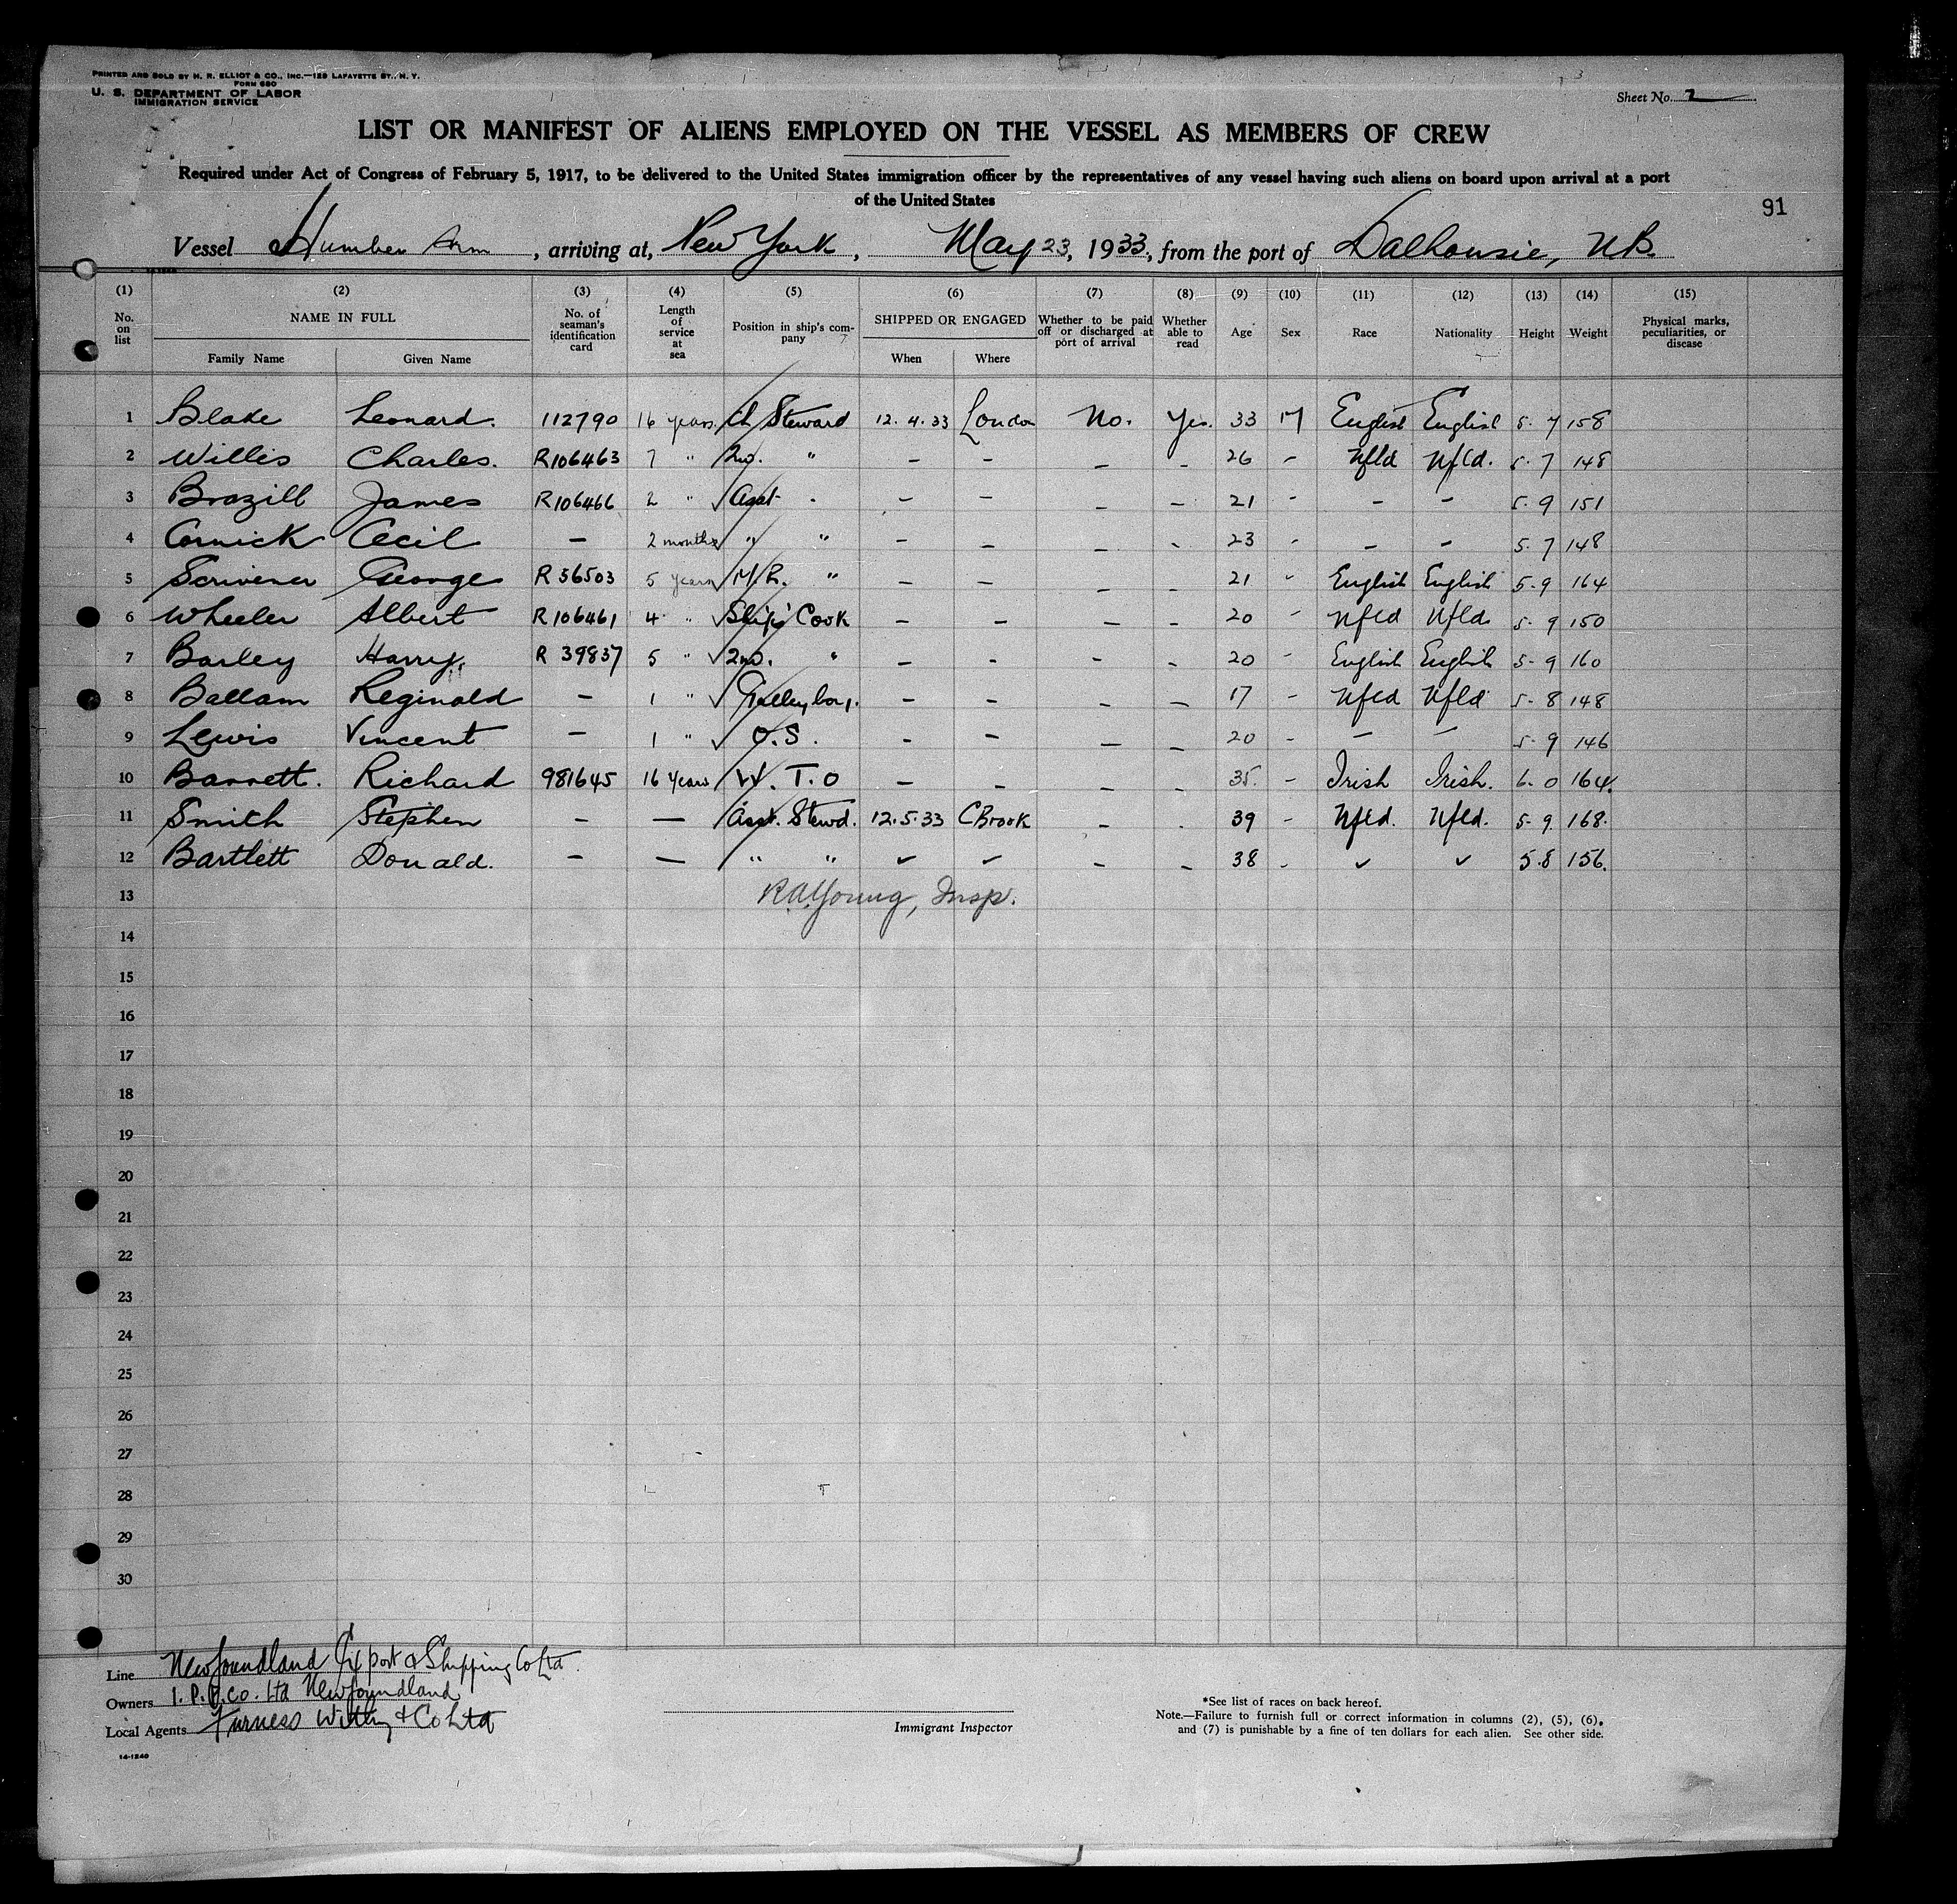 PRINTED AND SOLD BY H. R. ELLIOT & CO., INC.—129 LAFAYETTE ST., N. Y.
FORM 680
U. S. DEPARTMENT OF LABOR
IMMIGRATION SERVICE
Sheet No. 2
LIST OR MANIFEST OF ALIENS EMPLOYED ON THE VESSEL AS MEMBERS OF CREW
Required under Act of Congress of February 5, 1917, to be delivered to the United States immigration officer by the representatives of any vessel having such aliens on board upon arrival at a port
of the United States
91
Vessel Humber Arm, arriving at, New York, May 23, 1933, from the port of Dalhousie, N.B.
(1) (2) (3) (4) (5) (6) (7) (8) (9) (10) (11) (12) (13) (14) (15)
No. on list NAME IN FULL Family Name Given Name No. of seaman's identification card Length of service at sea Position in ship's company SHIPPED OR ENGAGED When Where Whether to be paid off or discharged at port of arrival Whether able to read Age Sex Race Nationality Height Weight Physical marks, peculiarities, or disease
1 Blake Leonard. 112790 16 years Ch Steward 12.4.33 London No. Yes. 33 M English English 5-7 158
2 Willis Charles. R106463 7 " 2nd. " – – – – 26 – Nfld Nfld. 5-7 148
3 Brazill James R106466 2 " Asst – – – – 21 – – – 5-9 151
4 Cormick Cecil – 2 months " " – – – – 23 – – – 5-7 148
5 Scrivener George R 56503 5 years M.R. " – – – – 21 " English English 5-9 164
6 Wheeler Albert R106461 4 " Ship's Cook – – – – 20 – Nfld Nfld. 5-9 150
7 Barley Harry. R 39837 5 " 2nd. " – – – – 20 – English English 5-9 160
8 Ballam Reginald – 1 " Galley boy. – – – – 17 – Nfld Nfld 5-8 148
9 Lewis Vincent – 1 " O.S. – – – – 20 – – – 5-9 146
10 Barrett. Richard 981645 16 years W.T.O – – – – 35. – Irish Irish. 6-0 164.
11 Smith Stephen – – Asst. Stewd. 12.5.33 C Brook – . 39 – Nfld. Nfld. 5-9. 168.
12 Bartlett Donald. – – " " ✓ ✓ – – 38 – ✓ ✓ 5.8 156.
13 R.A. Young, Insp.
14
15
16
17
18
19
20
21
22
23
24
25
26
27
28
29
30
Line Newfoundland Export & Shipping Co Ltd.
Owners I.P.P.Co. Ltd Newfoundland
Local Agents Furness Withy & Co Ltd
14-1240
Immigrant Inspector
*See list of races on back hereof.
Note.—Failure to furnish full or correct information in columns (2), (5), (6),
and (7) is punishable by a fine of ten dollars for each alien. See other side.